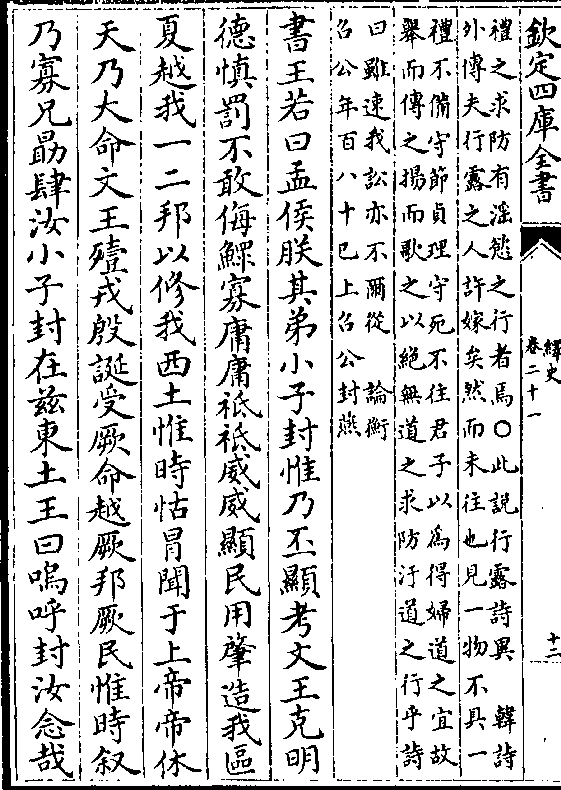 欽定四庫全書
繹史
卷二十一
十二
禮之求防有淫慾之行者焉○此説行露詩異　韓詩
外傳夫行露之人許嫁矣然而未往也見一物不具一
禮不備守節貞理守死不往君子以爲得婦道之宜故
舉而傳之揚而歌之以絶無道之求防汙道之行乎詩
曰雖速我訟亦不爾從　論衡
召公年百八十已上召公封燕
書王若曰孟侯朕其弟小子封惟乃丕顯考文王克明
德慎罰不敢侮鰥寡庸庸祗祗威威顯民用肇造我區
夏越我一二邦以修我西土惟時怙冒聞于上帝帝休
天乃大命文王殪戎殷誕受厥命越厥邦厥民惟時叙
乃寡兄勗肆汝小子封在兹東土王曰嗚呼封汝念哉